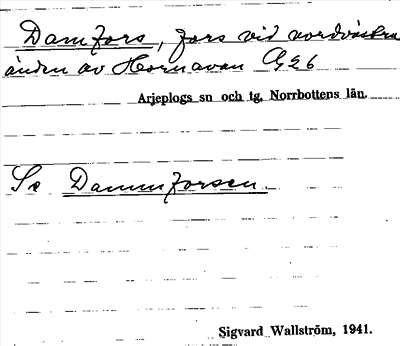 Damfors, fors vid nordvästra
änden av Hornavan G26
Arjeplogs sn och tg, Norrbottens län.
Se Dammforsen.
Sigvard Wallström, 1941.